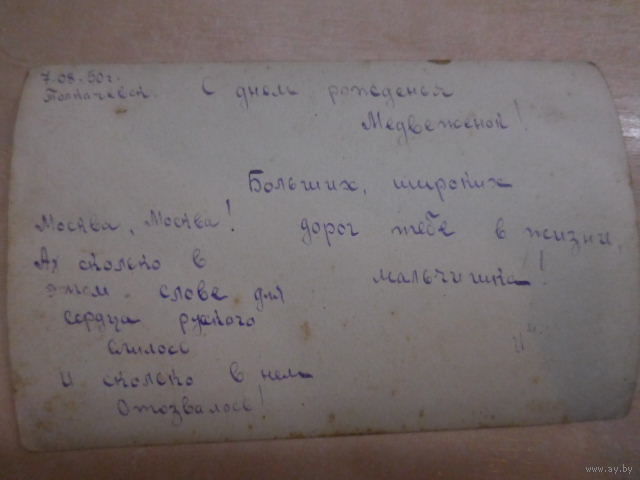 7.08.50г.
Толпачевск.
С днем рожденея
Медвеженой!
Больших, широких
дорог тебе в жизни,
мальчишка!
Москва, Москва!
Ах сколько в
этом слове для
сердца руского
слилось
И сколько в нем
отозвалось!
www.ay.by